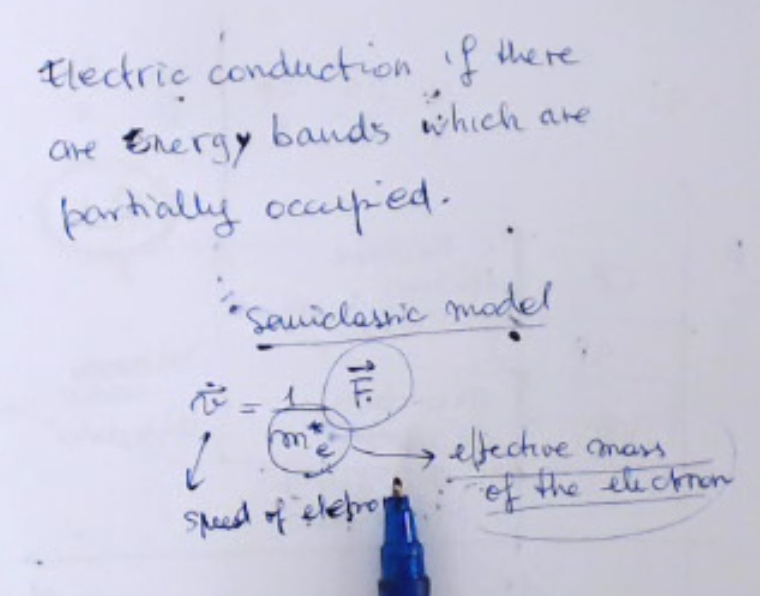 Electric conduction if there
are Energy bands which are
partially occupied.
Semiclassic model
v⃗ = 1/m*e F⃗
effective mass
of the electron
speed of